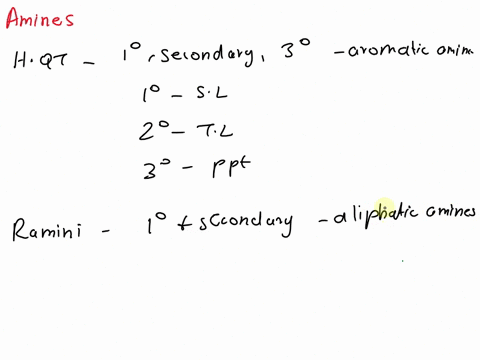 Amines
H.QT - 1°, secondary, 3° - aromatic amin
1° - S.L
2° - T.L
3° - ppt
Ramini - 1° + secondary - aliphatic amines